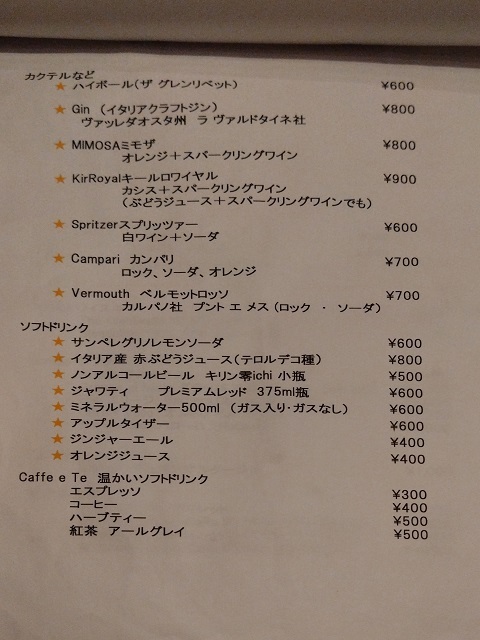 カクテルなど
★ ハイボール(ザ グレンリベット) ¥600
★ Gin (イタリアクラフトジン) ¥800
ヴァッレダオスタ州 ラ ヴァルドタイネ社
★ MIMOSAミモザ ¥800
オレンジ+スパークリングワイン
★ KirRoyalキールロワイヤル ¥900
カシス+スパークリングワイン
(ぶどうジュース+スパークリングワインでも)
★ Spritzerスプリッツァー ¥600
白ワイン+ソーダ
★ Campari カンパリ ¥700
ロック、ソーダ、オレンジ
★ Vermouth ベルモットロッソ ¥700
カルパノ社 プント エ メス (ロック ・ ソーダ)
ソフトドリンク
★ サンペレグリノレモンソーダ ¥600
★ イタリア産 赤ぶどうジュース(テロルデコ種) ¥800
★ ノンアルコールビール キリン零ichi 小瓶 ¥500
★ ジャワティ プレミアムレッド 375ml瓶 ¥600
★ ミネラルウォーター500ml (ガス入り・ガスなし) ¥600
★ アップルタイザー ¥600
★ ジンジャーエール ¥400
★ オレンジジュース ¥400
Caffe e Te 温かいソフトドリンク
エスプレッソ ¥300
コーヒー ¥400
ハーブティー ¥500
紅茶 アールグレイ ¥500